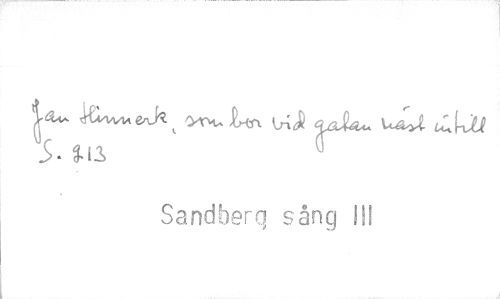 Jan Hinnerk, som bor vid gatan näst intill
S. 213
Sandberg sång III